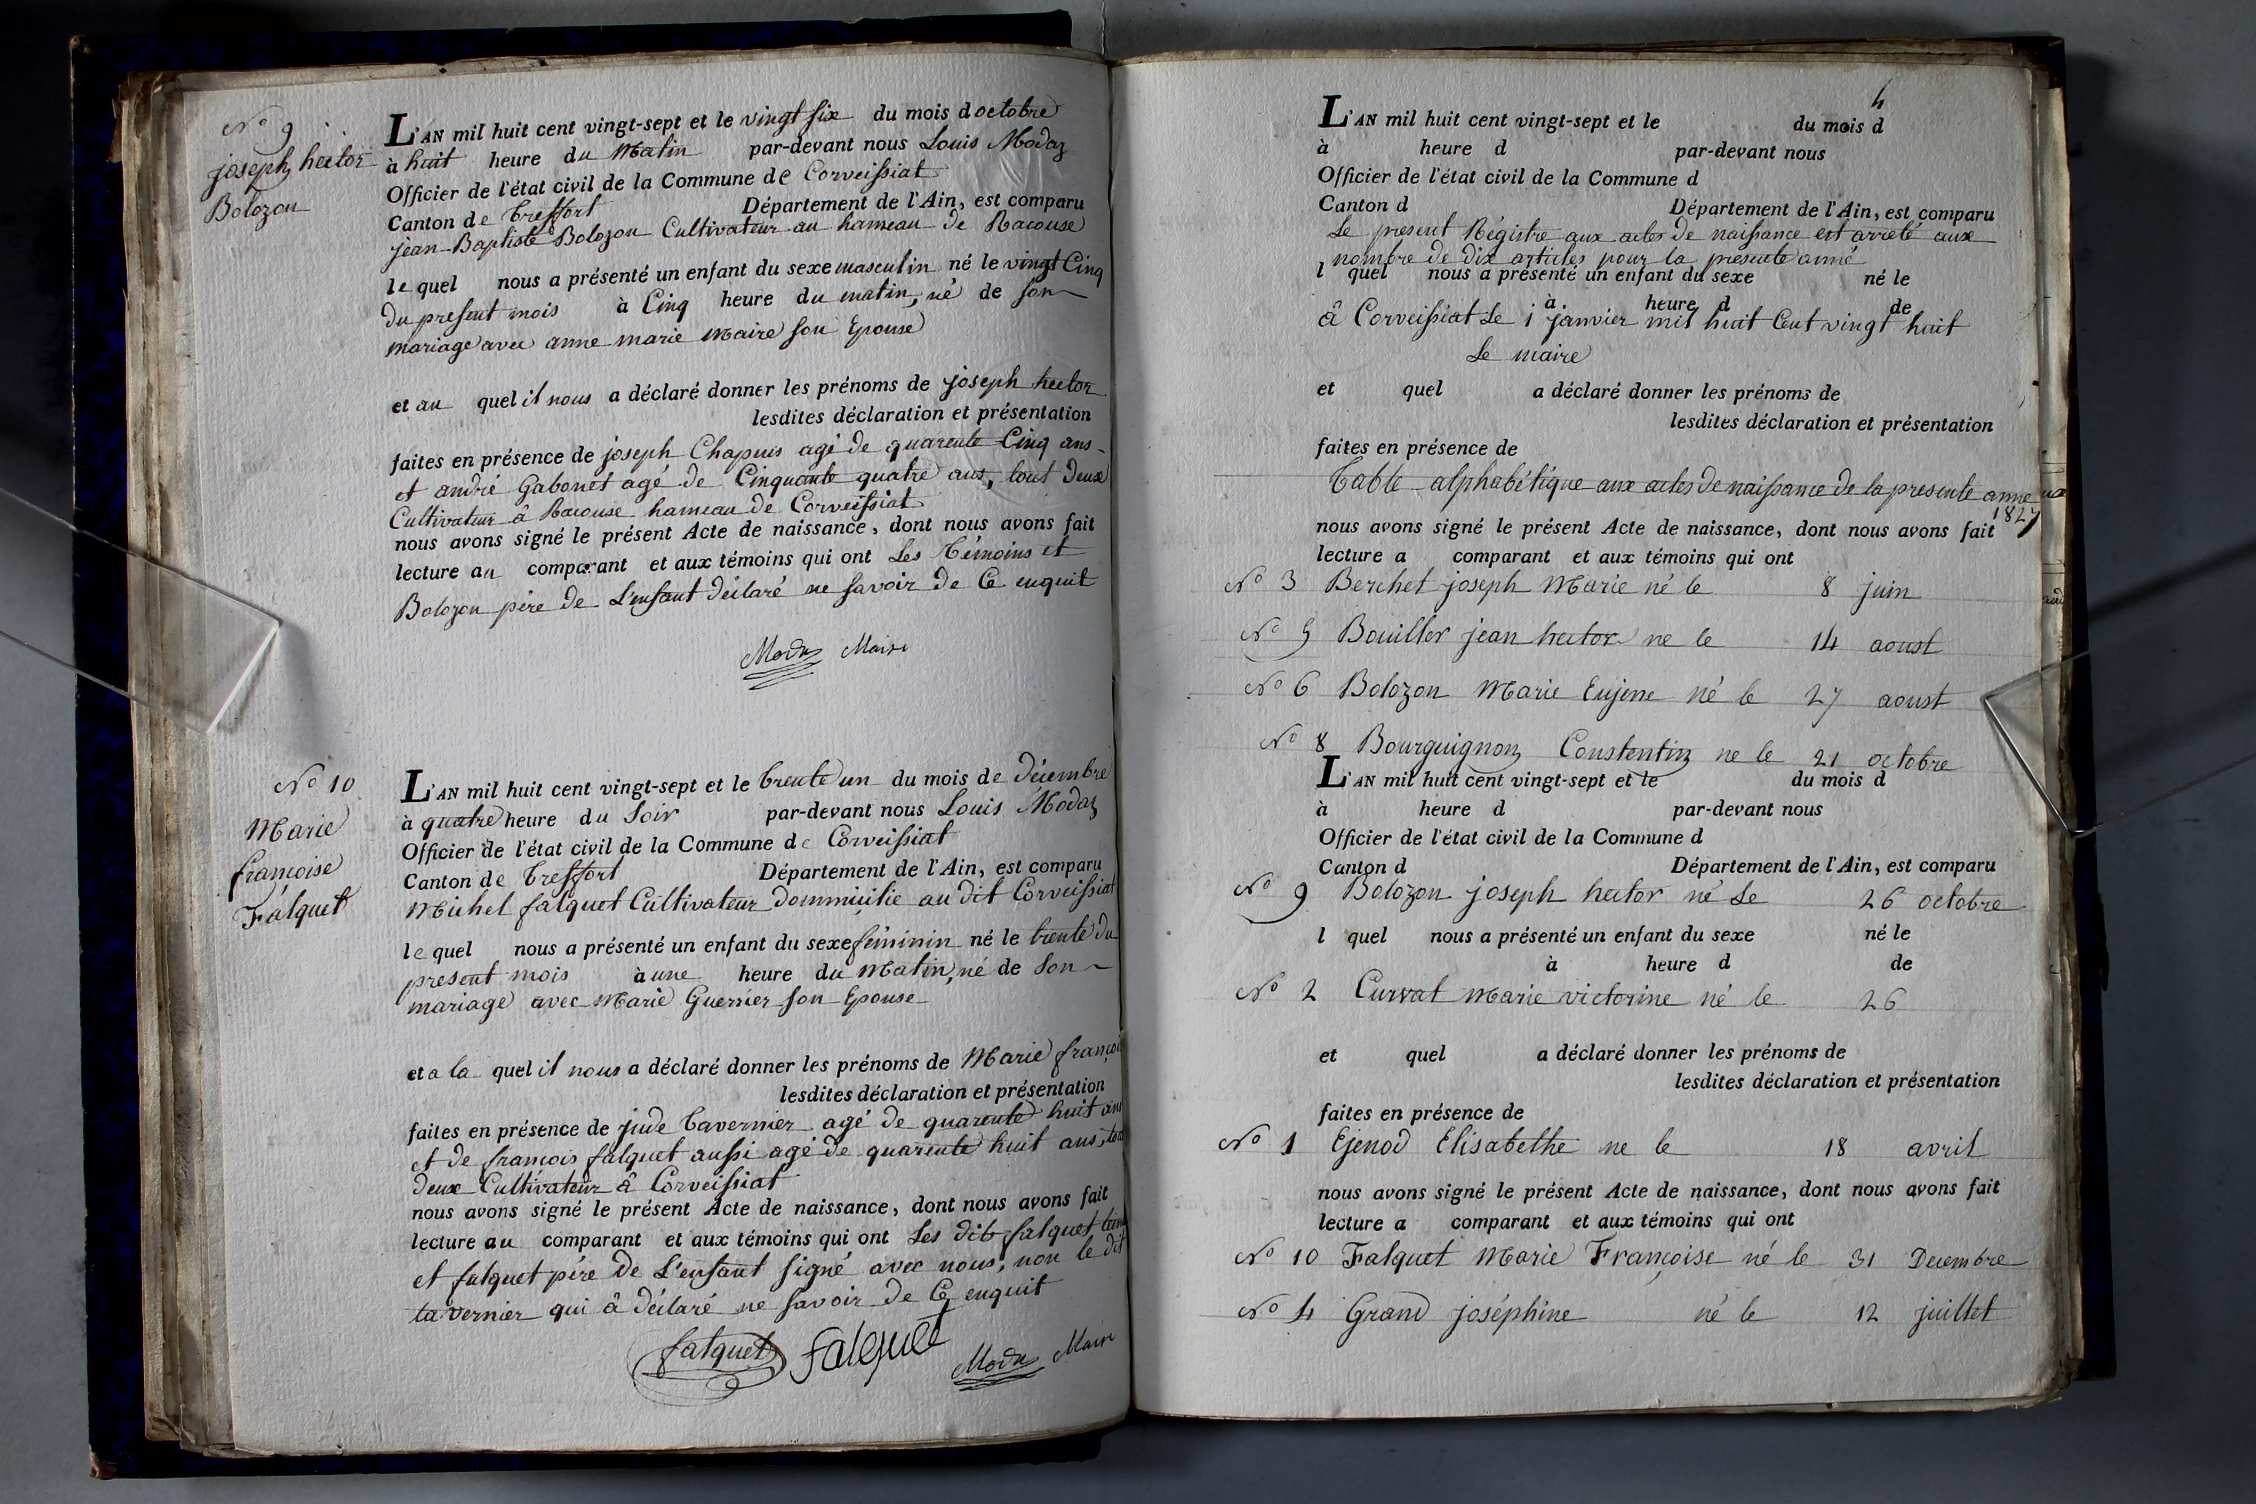 N° 9
joseph hector
Bolozon
L'AN mil huit cent vingt-sept et le vingt six du mois d octobre
à huit heure du Matin par-devant nous Louis Modaz
Officier de l'état civil de la Commune de Corveissiat
Canton de Treffort Département de l'Ain, est comparu
jean-Baptiste Bolozon Cultivateur au hameau de Racouse
le quel nous a présenté un enfant du sexe masculin né le vingt Cinq
du present mois à Cinq heure du matin, né de son
mariage avec anne marie maire son Epouse
et au quel il nous a déclaré donner les prénoms de joseph hector
lesdites déclaration et présentation
faites en présence de joseph Chapuis agé de quarente Cinq ans
et andré Gabonet agé de Cinquante quatre ans, tout deux
Cultivateur â Racouse hameau de Corveissiat
nous avons signé le présent Acte de naissance, dont nous avons fait
lecture au comparant et aux témoins qui ont Les Témoins et
Bolozon père de L'enfant déclaré ne savoir de Ce enquit
Modaz Maire
N° 10
Marie
françoise
Falquet
L'AN mil huit cent vingt-sept et le trente un du mois de décembre
à quatre heure du Soir par-devant nous Louis Modaz
Officier de l'état civil de la Commune de Corveissiat
Canton de Treffort Département de l'Ain, est comparu
Michel falquet Cultivateur dommicilie au dit Corveissiat
le quel nous a présenté un enfant du sexe féminin né le trente du
present mois à une heure du Matin, né de Son
mariage avec Marie Guernier son Epouse
et a la quel il nous a déclaré donner les prénoms de Marie françoi
lesdites déclaration et présentation
faites en présence de jude Tavernier agé de quarente huit ans
et de françois falquet aussi agé de quarente huit ans, tou
deux Cultivateur â Corveissiat
nous avons signé le présent Acte de naissance, dont nous avons fait
lecture au comparant et aux témoins qui ont Les dits falquet
et falquet père de L'enfant signé avec nous, non le dit
tavernier qui â déclaré ne savoir de Ce enquit
falquet falquet Modaz Maire
4
L'AN mil huit cent vingt-sept et le du mois d
à heure d par-devant nous
Officier de l'état civil de la Commune d
Canton d Département de l'Ain, est comparu
Le present Régistre aux actes de naissance est arreté aux
nombre de dix articles pour la presente anné
l quel nous a présenté un enfant du sexe né le
à heure d de
â Corveissiat Le 1 janvier mil huit Cent vingt huit
Le maire
et quel a déclaré donner les prénoms de
lesdites déclaration et présentation
faites en présence de
Table alphabétique aux actes de naissance de la presente anne
1827
nous avons signé le présent Acte de naissance, dont nous avons fait
lecture a comparant et aux témoins qui ont
N° 3 Berchet joseph Marie né le 8 juin
N° 5 Bouiller jean hector ne le 14 aoust
N° 6 Bolozon Marie Eujene né le 27 aoust
N° 8 Bourguignon Constentin ne le 21 octobre
L'AN mil huit cent vingt-sept et le du mois d
à heure d par-devant nous
Officier de l'état civil de la Commune d
Canton d Département de l'Ain, est comparu
N° 9 Bolozon joseph hector né Le 26 octobre
l quel nous a présenté un enfant du sexe né le
à heure d de
N° 2 Curvat Marie victorine né le 26
et quel a déclaré donner les prénoms de
lesdites déclaration et présentation
faites en présence de
N° 1 Ejenod Elisabethe ne le 18 avril
nous avons signé le présent Acte de naissance, dont nous avons fait
lecture a comparant et aux témoins qui ont
N° 10 Falquet Marie Françoise né le 31 Decembre
N° 4 Grand joséphine né le 12 juillet